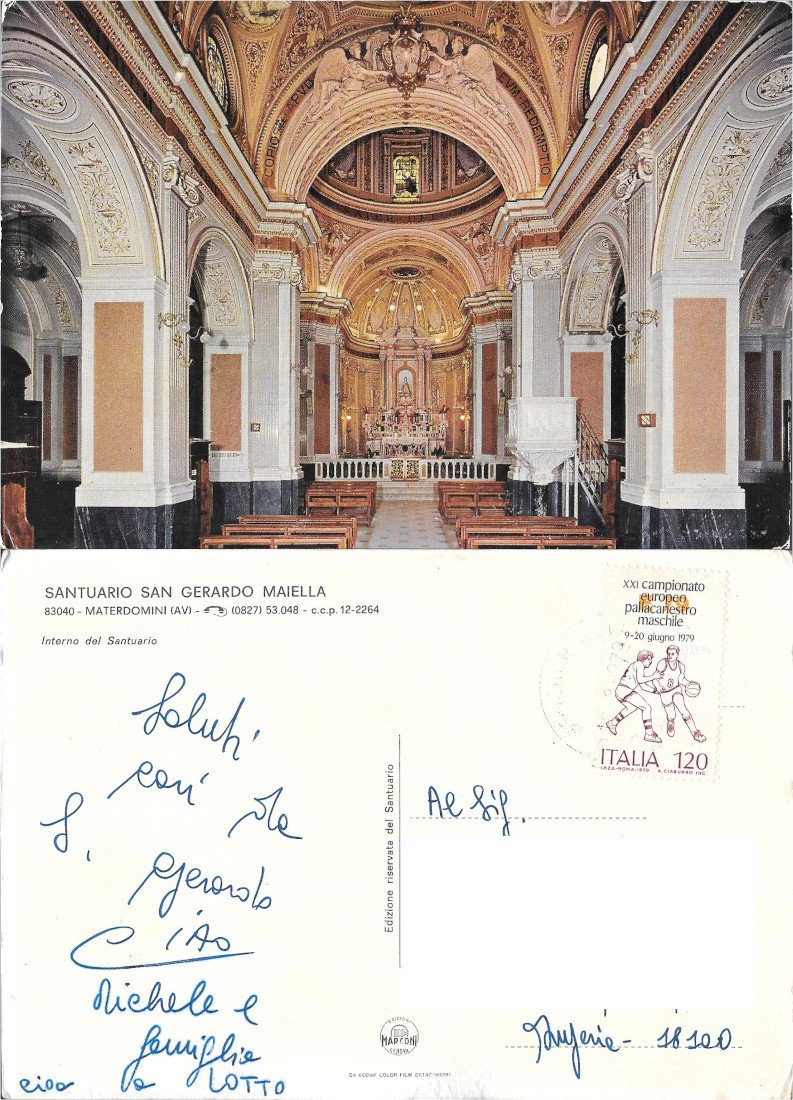 COPIOSA APVD
EVM REDEMPTIO
SANTUARIO SAN GERARDO MAIELLA
83040 - MATERDOMINI (AV) - (0827) 53.048 - c.c.p. 12-2264
Interno del Santuario
XXI campionato
europeo
pallacanestro
maschile
9-20 giugno 1979
8
ITALIA 120
I.P.Z.S.-ROMA-1979 A. CIABURRO INC.
Saluti
cari da
S.
Gerardo
CIAO
Michele e
famiglia
ciao LOTTO
Edizione riservata del Santuario
Al Sig.
Imperia - 18100
EDIZIONI
MARCONI
GENOVA
DA KODAK COLOR FILM EKTACHROME